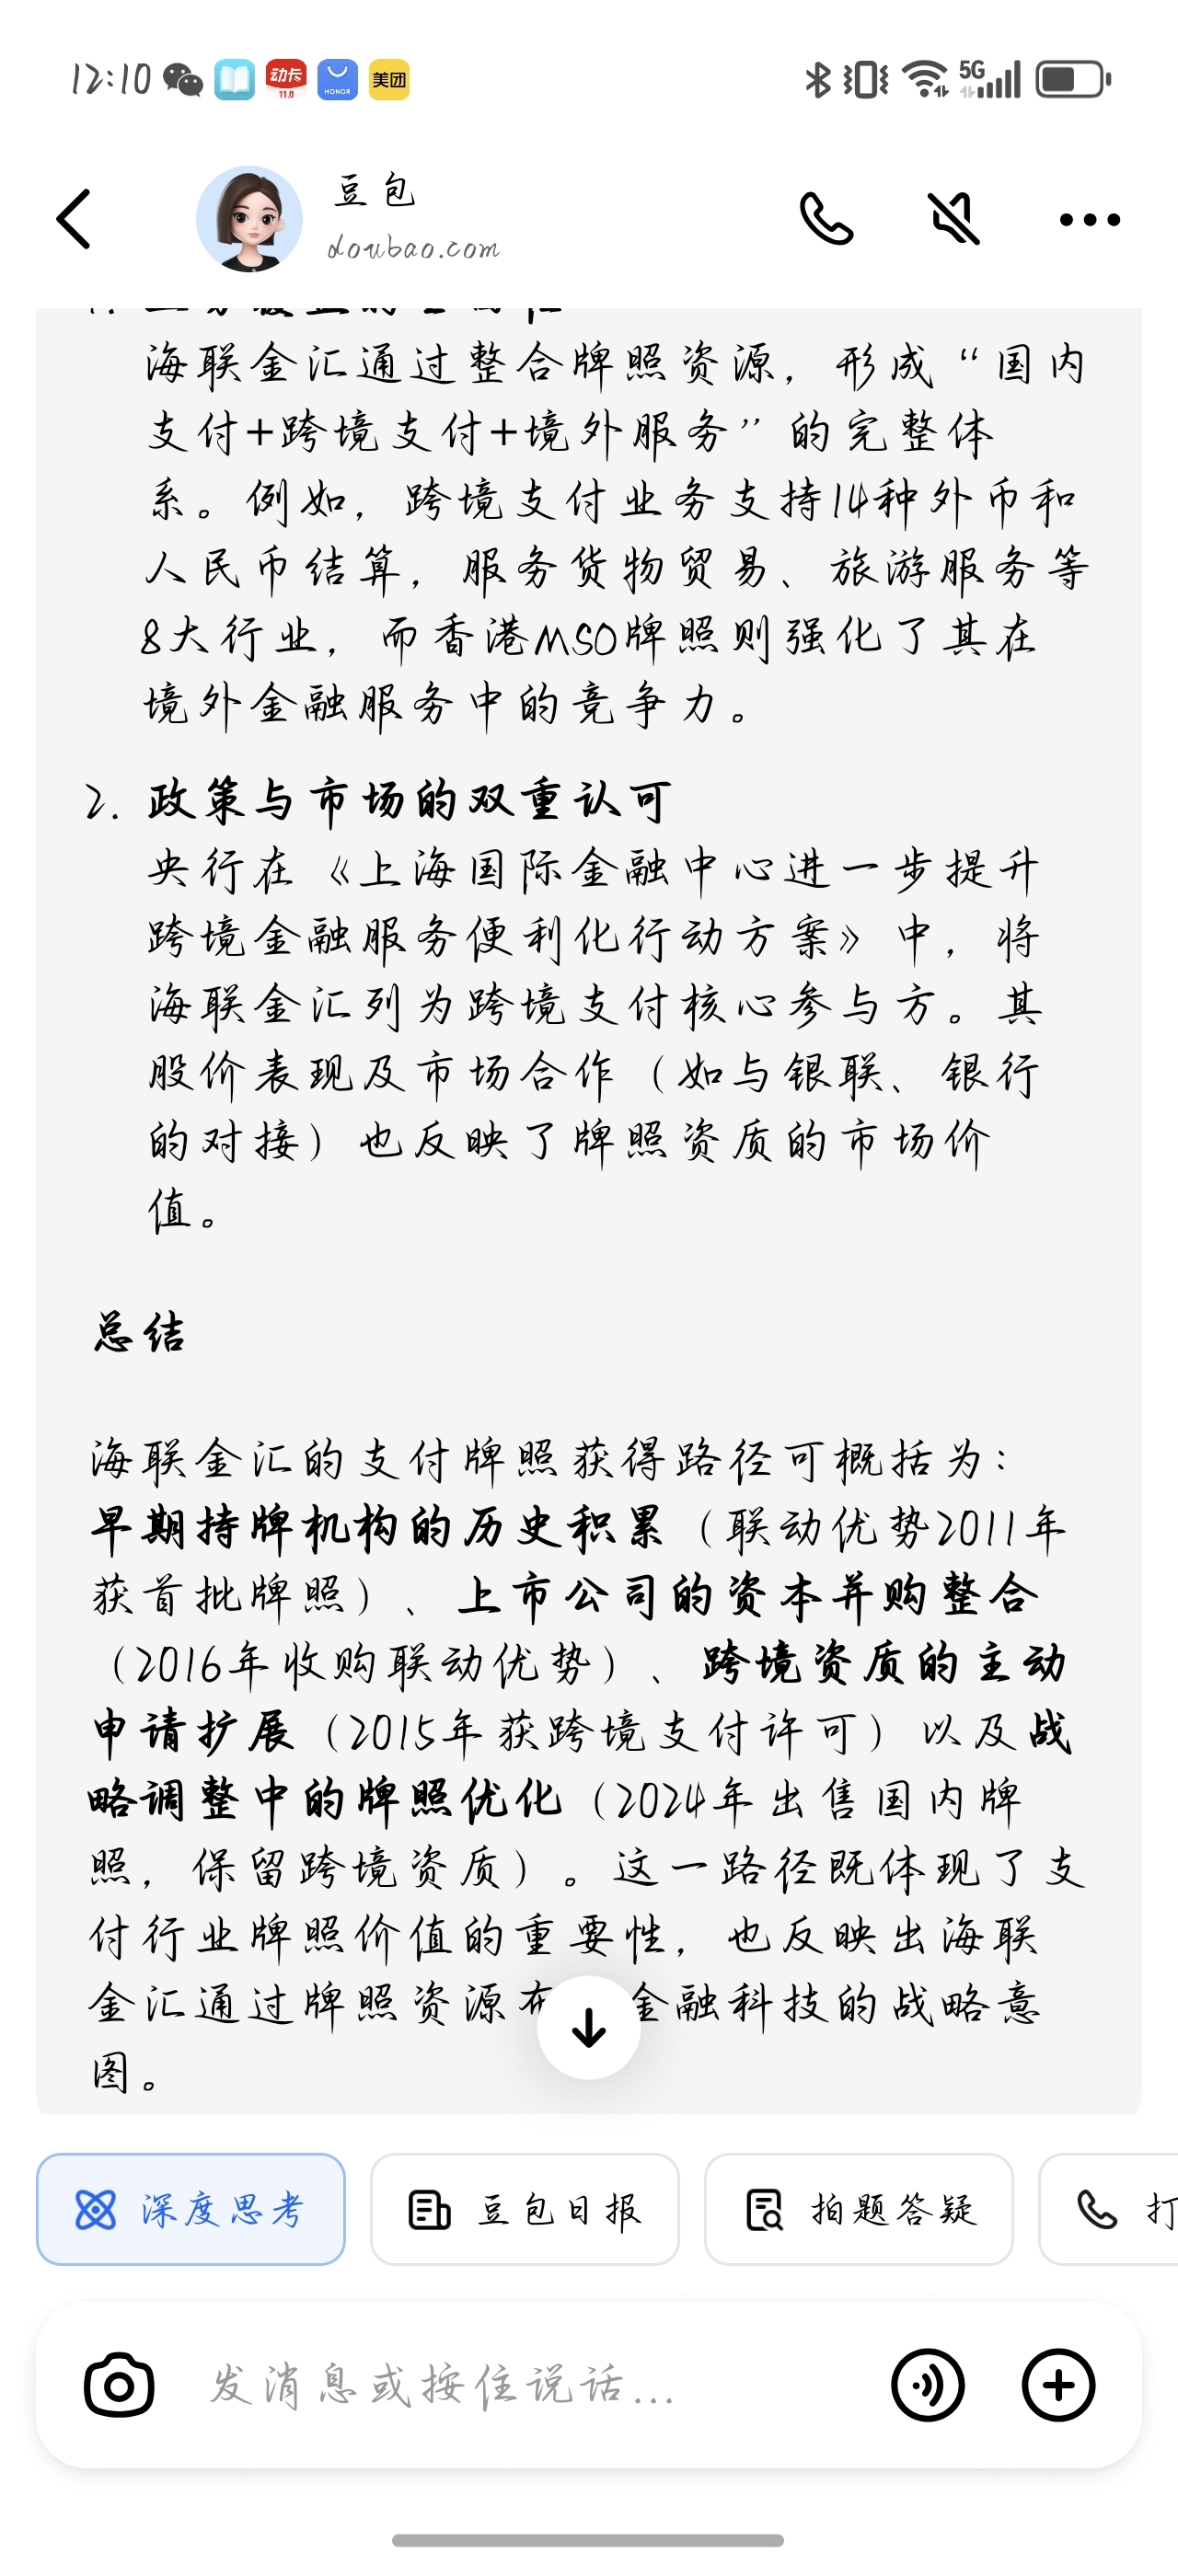 12:10
动卡
11.0
HONOR
美团
5G
豆包
doubao.com
海联金汇通过整合牌照资源，形成“国内
支付+跨境支付+境外服务”的完整体
系。例如，跨境支付业务支持14种外币和
人民币结算，服务货物贸易、旅游服务等
8大行业，而香港MSO牌照则强化了其在
境外金融服务中的竞争力。
2. 政策与市场的双重认可
央行在《上海国际金融中心进一步提升
跨境金融服务便利化行动方案》中，将
海联金汇列为跨境支付核心参与方。其
股价表现及市场合作（如与银联、银行
的对接）也反映了牌照资质的市场价
值。
总结
海联金汇的支付牌照获得路径可概括为：
早期持牌机构的历史积累（联动优势2011年
获首批牌照）、上市公司的资本并购整合
（2016年收购联动优势）、跨境资质的主动
申请扩展（2015年获跨境支付许可）以及战
略调整中的牌照优化（2024年出售国内牌
照，保留跨境资质）。这一路径既体现了支
付行业牌照价值的重要性，也反映出海联
金汇通过牌照资源布 金融科技的战略意
图。
深度思考
豆包日报
拍题答疑
打
发消息或按住说话...